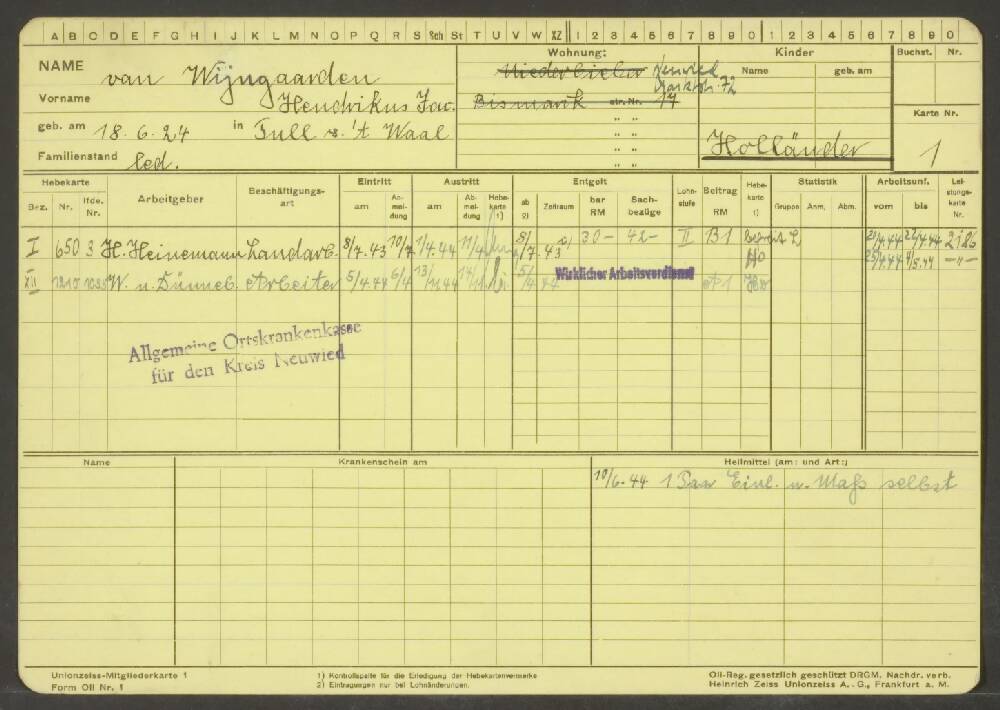 A B C D E F G H I J K L M N O P Q R S Sch St T U V W XZ 1 2 3 4 5 6 7 8 9 0 1 2 3 4 5 6 7 8 9 0
NAME van Wijngaarden
Vorname Hendrikus Jac.
geb. am 18.6.24 in Tull u. 't Waal
Familienstand led.
Wohnung:
Niederbieber Neuwied
Bismarck str. Nr. 17
Kinder
Name geb. am
Holländer
Buchst. Nr.
Karte Nr.
1
Hebekarte Arbeitgeber Beschäftigungsart Eintritt Austritt Entgelt Lohnstufe Beitrag RM Hebekarte 1) Statistik Arbeitsunf. Leistungskarte Nr.
Bez. Nr. lfde. Nr. am Anmeldung am Abmeldung Hebekarte 1) ab 2) Zeitraum bar RM Sachbezüge Gruppe Anm. Abm. vom bis
I 650 3 H. Heinemann Landarb. 8/7.43 10/7 1/4.44 11/4 8/7.43 30- 42- II B1 21/4.44 22/4.44 2126
XII W. u. Dünneb. Arbeiter 5/4.44 6/4 13/11.44 14/11 5/4.44 Wirklicher Arbeitsverdienst A1
Allgemeine Ortskrankenkasse
für den Kreis Neuwied
Name Krankenschein am Heilmittel (am: und Art:)
10/6.44 1 Paar Einl. n. Maß selbst
Unionzeiss-Mitgliederkarte 1
Form Oll Nr. 1
1) Kontrollspalte für die Erledigung der Hebekartenvermerke
2) Eintragungen nur bei Lohnänderungen.
Oll-Reg. gesetzlich geschützt DRGM. Nachdr. verb.
Heinrich Zeiss Unionzeiss A.-G., Frankfurt a. M.